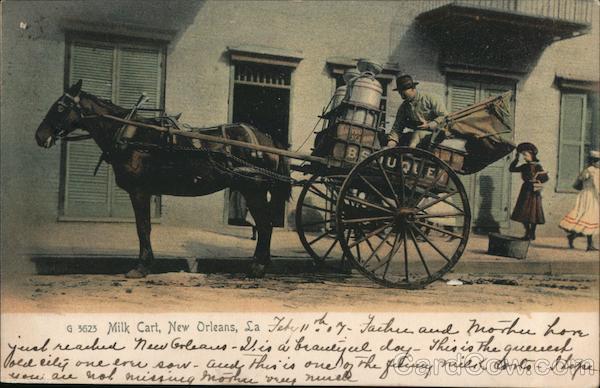 B UQUE
G 3623 Milk Cart, New Orleans, La Feb 11th 07 - Father and Mother have
just reached New Orleans - It is a beautiful day - This is the queerest
old city one ever saw - and this is one of the funny milk carts - I hope
you are not missing Mother very much
CardCow.com